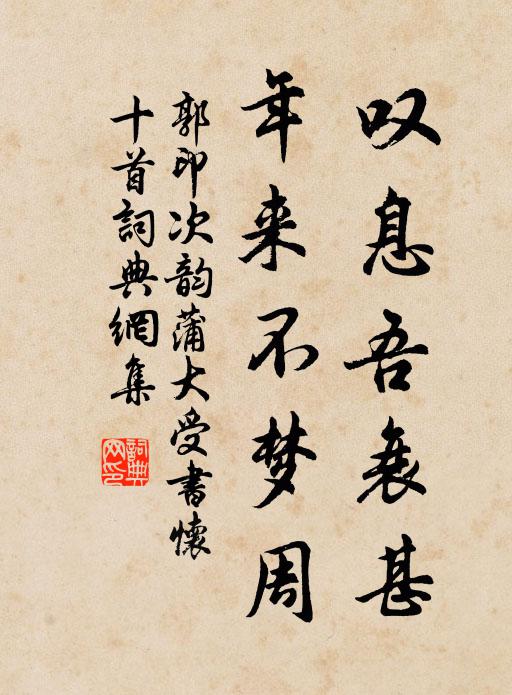 叹息吾衰甚
年来不梦周
郭印次韵蒲大受書懷
十首詞典網集
詞典网印